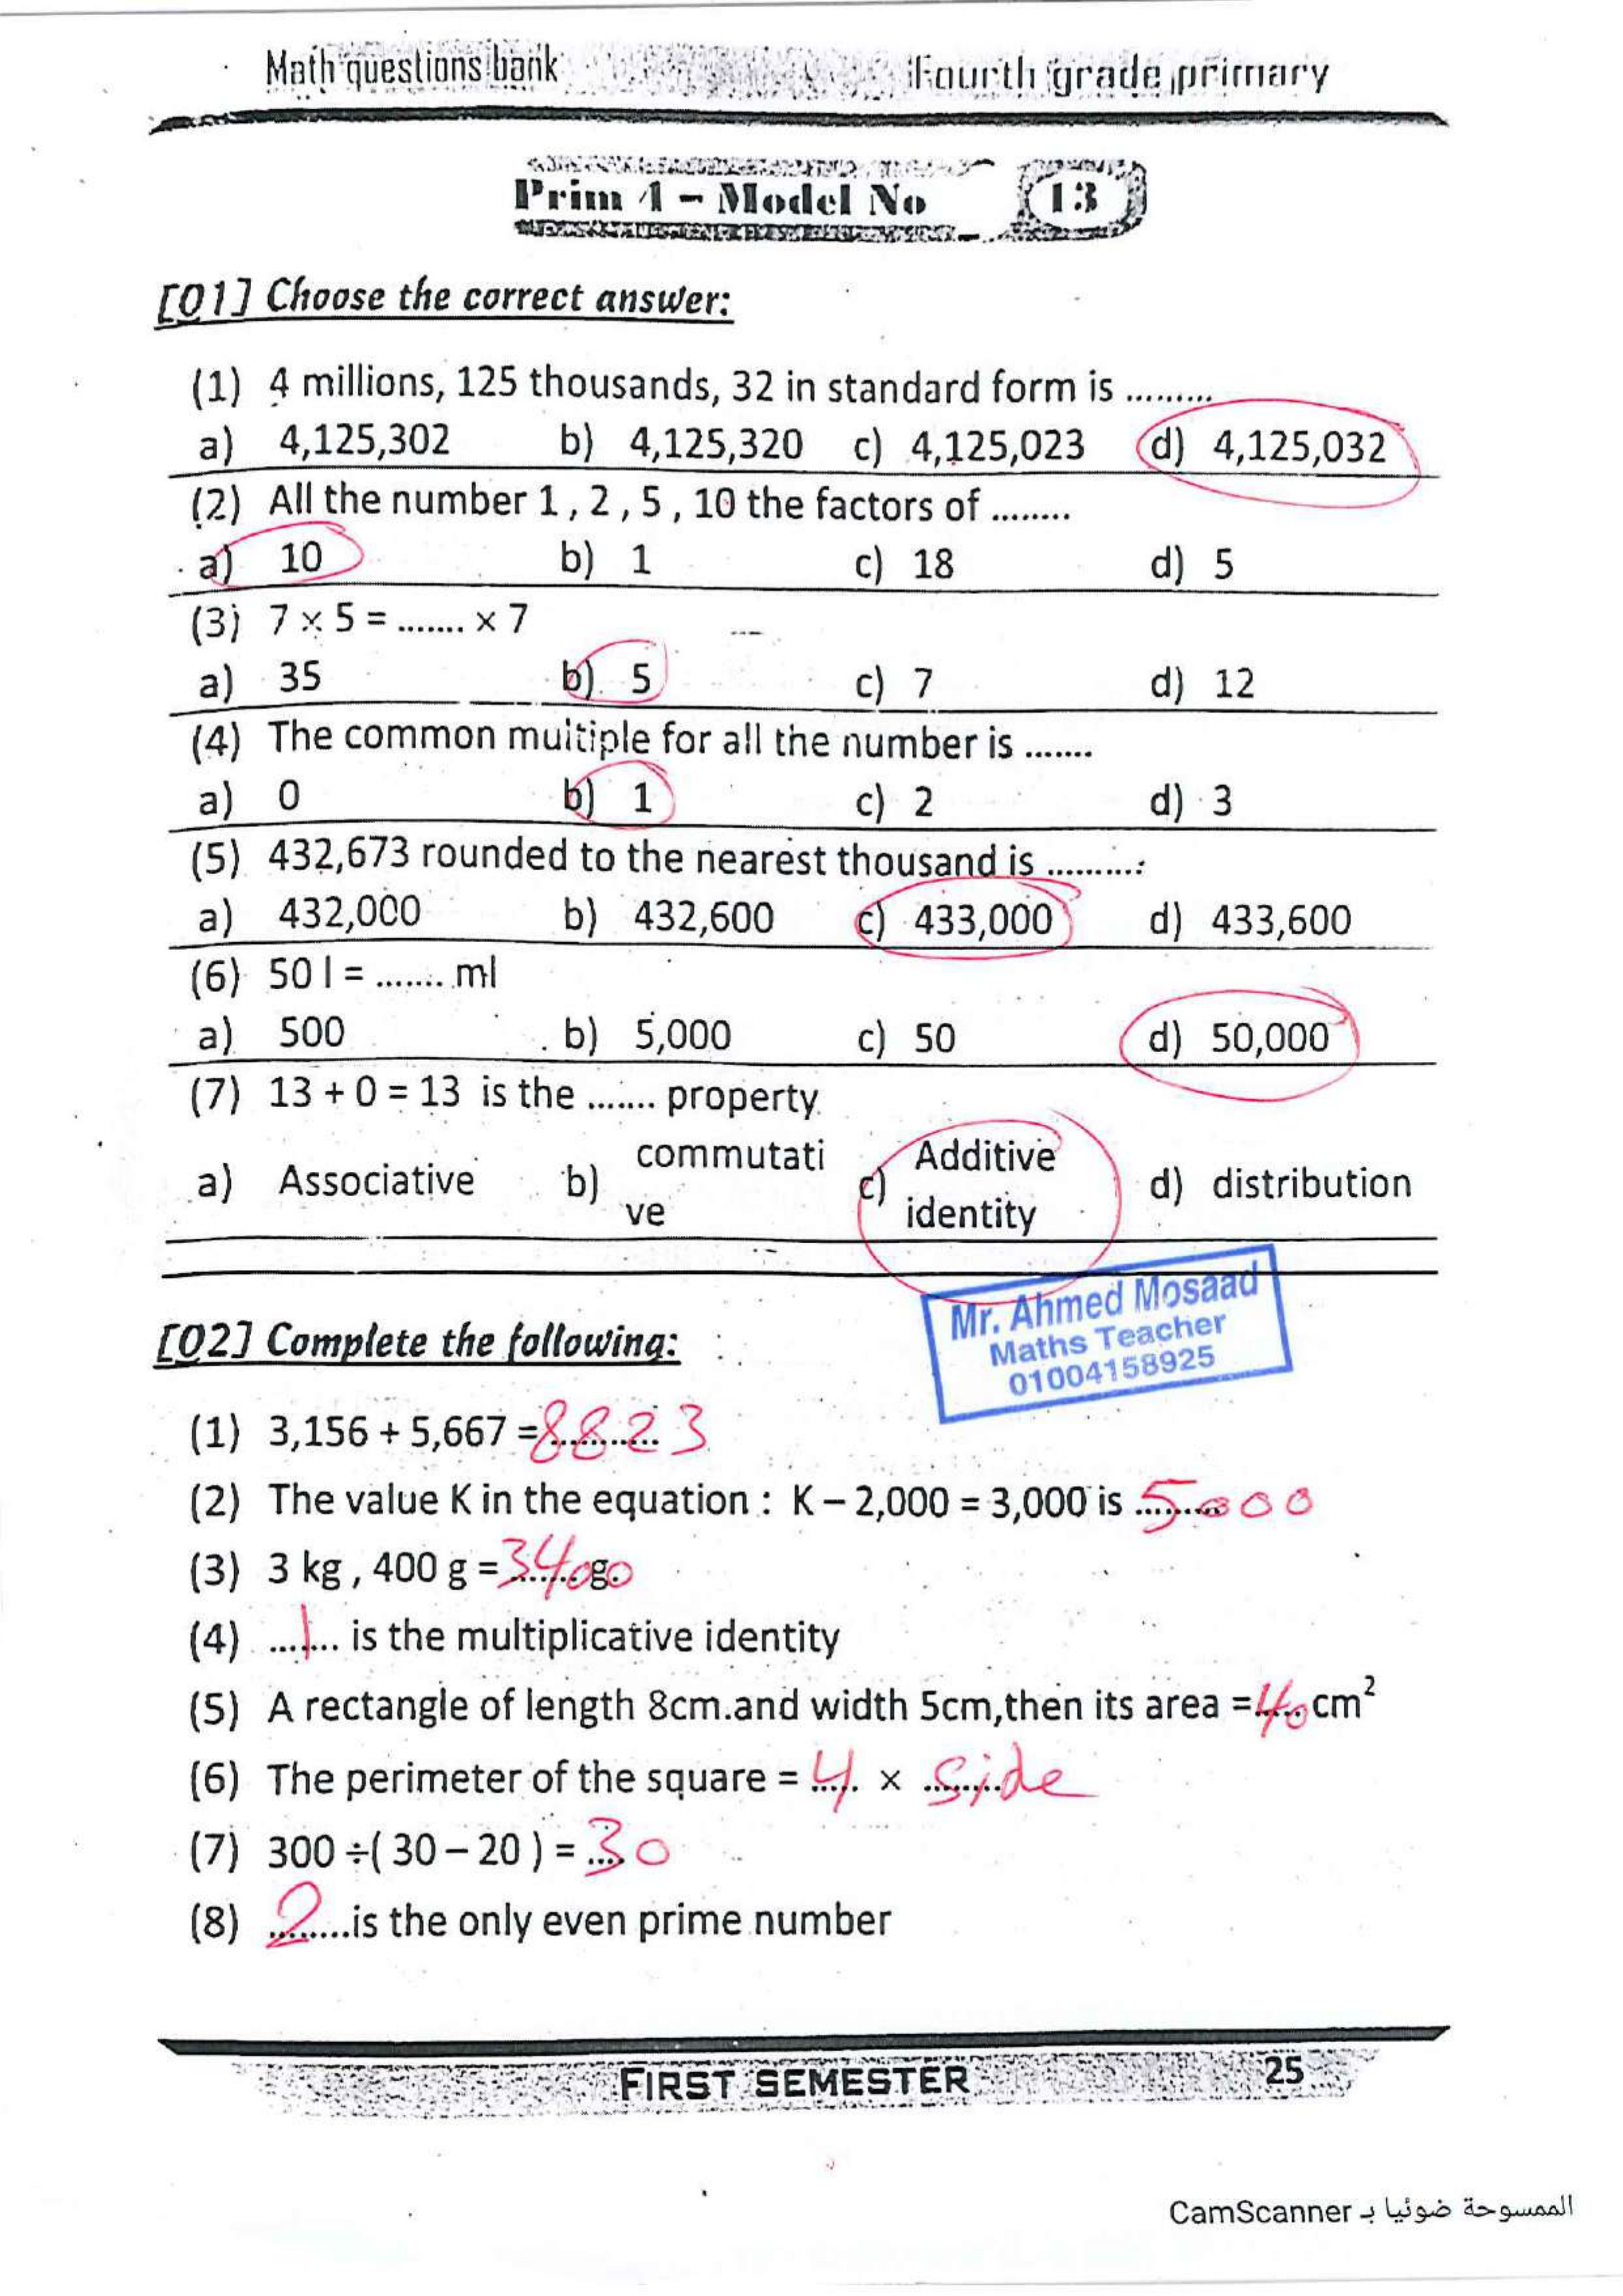 Math questions bank Fourth grade primary
Prim 4 – Model No 13
[Q1] Choose the correct answer:
(1) 4 millions, 125 thousands, 32 in standard form is .........
a) 4,125,302 b) 4,125,320 c) 4,125,023 d) 4,125,032
(2) All the number 1 , 2 , 5 , 10 the factors of ........
a) 10 b) 1 c) 18 d) 5
(3) 7 × 5 = ....... × 7
a) 35 b) 5 c) 7 d) 12
(4) The common multiple for all the number is .......
a) 0 b) 1 c) 2 d) 3
(5) 432,673 rounded to the nearest thousand is ..........
a) 432,000 b) 432,600 c) 433,000 d) 433,600
(6) 50 l = ....... ml
a) 500 b) 5,000 c) 50 d) 50,000
(7) 13 + 0 = 13 is the ....... property
a) Associative b) commutati
ve c) Additive
identity d) distribution
Mr. Ahmed Mosaad
Maths Teacher
01004158925
[Q2] Complete the following:
(1) 3,156 + 5,667 = 8823
(2) The value K in the equation : K – 2,000 = 3,000 is 5000
(3) 3 kg , 400 g = 3400 g.
(4) ...1... is the multiplicative identity
(5) A rectangle of length 8cm.and width 5cm,then its area = 40 cm²
(6) The perimeter of the square = 4 × side
(7) 300 ÷( 30 – 20 ) = 30
(8) 2 ...is the only even prime number
FIRST SEMESTER 25
الممسوحة ضوئيا بـ CamScanner